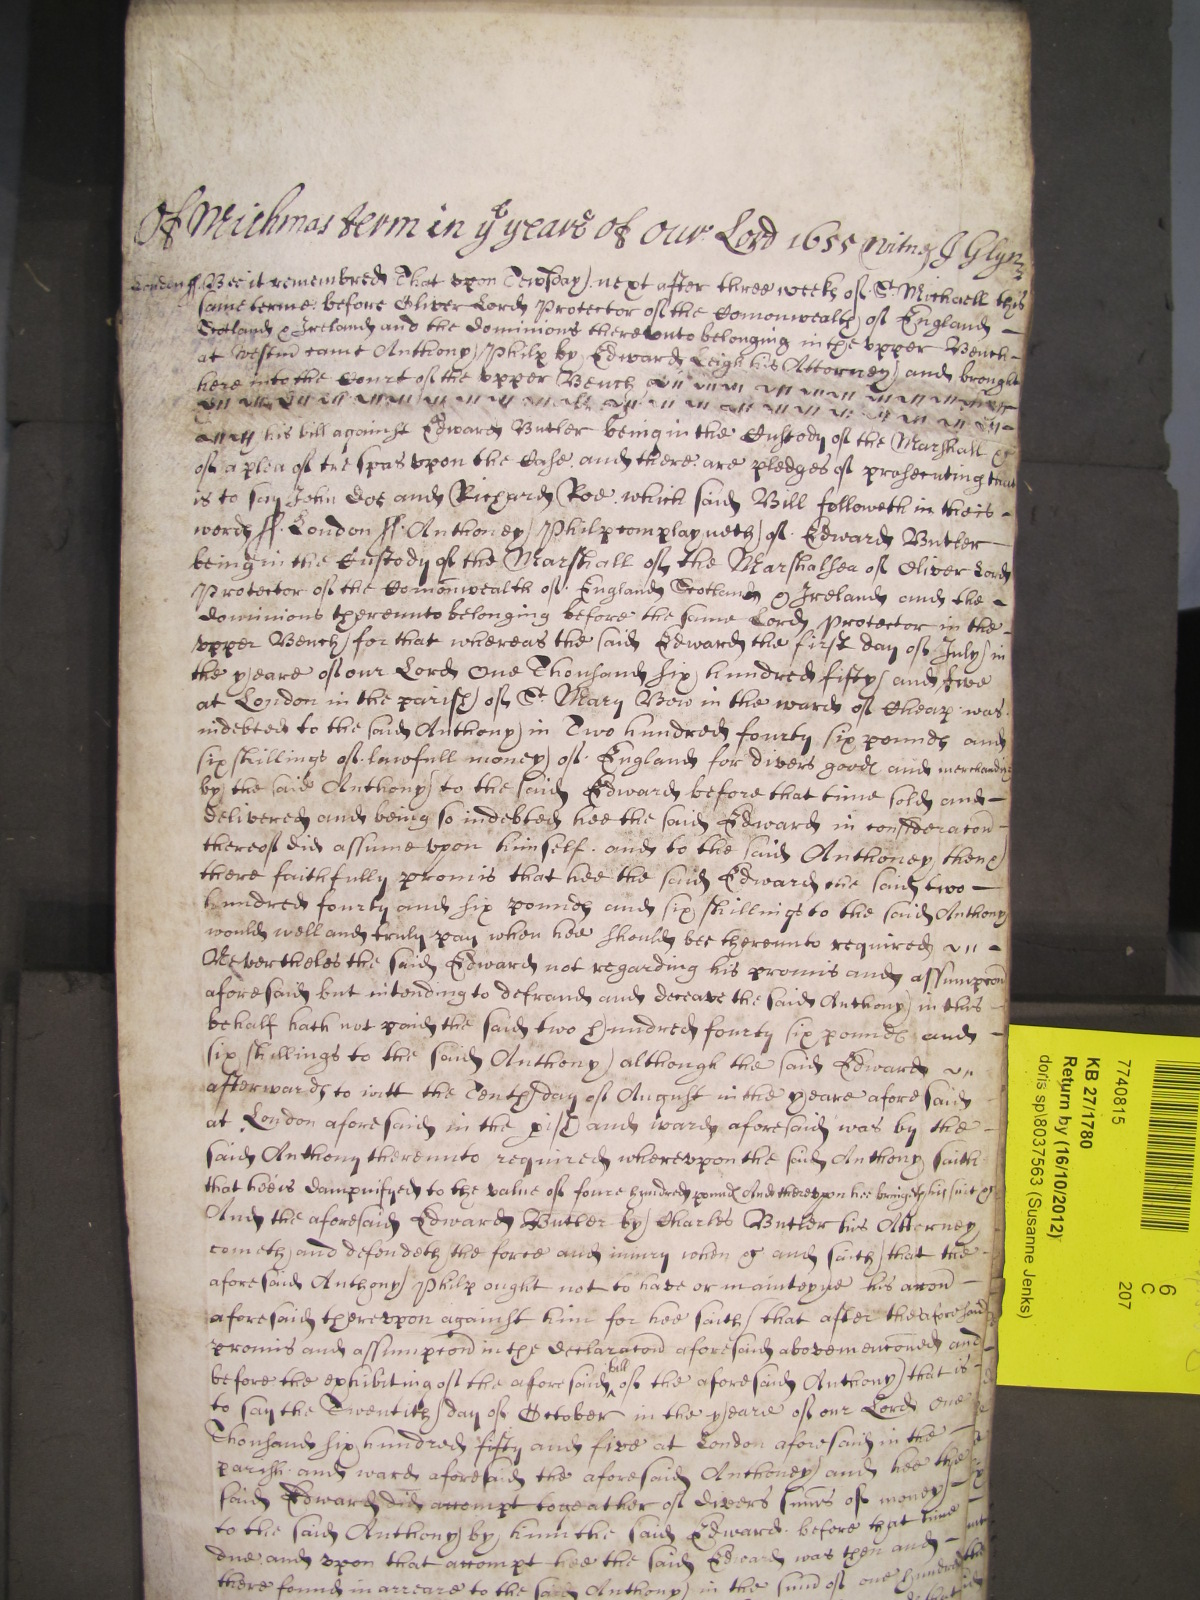 Of Michmas terme in ye yeare of our Lord 1655 Witnes J Glyn
London ss. Bee it remembred That upon Tewsday next after three weeks of St. Michaell this
same terme before Oliver Lord Protector of the Comonwealth of England
Scotland & Ireland and the dominions thereunto belonging in the upper Bench
at Westmr came Anthony Philp by Edward Leigh his Attorney and brought
here into the Court of the upper Bench
his bill against Edward Butler being in the Custody of the Marshall &c
of a plea of trespas upon the Case. and there are pledges of prosecuting that
is to say John Doe and Richard Roe. which said Bill followeth in theis
words ss. London ss. Anthoney Philp complayneth of Edward Butler
being in the Custody of the Marshall of the Marshalsea of Oliver Lord
Protector of the Comonwealth of England Scotland & Ireland and the
dominions thereunto belonging before the same Lord Protector in the
upper Bench for that whereas the said Edward the first day of July in
the yeare of our Lord One Thousand six hundred fifty and five
at London in the parish of St Mary Bow in the ward of Cheap was
indebted to the said Anthony in Two hundred fourty six pounds and
six shillings of lawfull money of England for divers goods and merchandizes
by the said Anthony to the said Edward before that time sold and
delivered and being so indebted hee the said Edward in consideracon
thereof did assume upon himself. and to the said Anthoney then &
there faithfully promis that hee the said Edward the said two
hundred fourty and six pounds and six shillings to the said Anthony
would well and truly pay when hee should bee thereunto required
Nevertheles the said Edward not regarding his promis and assumpcon
aforesaid but intending to defraud and deceave the said Anthony in this
behalf hath not paid the said two hundred fourty six pounds and
six shillings to the said Anthony although the said Edward
afterwards to witt the Tenth day of August in the yeare aforesaid
at London aforesaid in the pish and ward aforesaid was by the
said Anthony thereunto required whereupon the said Anthony saith
that hee is dampnifyed to the value of foure hundred pounds And thereupon hee bringeth his suit &c
And the aforesaid Edward Butler by Charles Butler his Attorney
cometh and defendeth the force and iniury when &c and saith that the
aforesaid Anthony Philp ought not to have or mainteyne his accon
aforesaid thereupon against him for hee saith that after the aforesaid
promis and assumpcon in the declaracon aforesaid abovemenconed and
before the exhibiting of the aforesaid bill of the aforesaid Anthony that is
to say the Twentith day of October in the yeare of our Lord One
Thousand six hundred fifty and five at London aforesaid in the
parish and ward aforesaid the aforesaid Anthoney and hee the
said Edward did accompt togeather of divers sumes of money
to the said Anthony by him the said Edward before that time
due and upon that accompt hee the said Edward was then and
there found in arreare to the said Anthony in the sume of one hundred
7740815
KB 27/1780
Return by (16/10/2012)
doris sp\8037563 (Susanne Jenks)
6
C
207